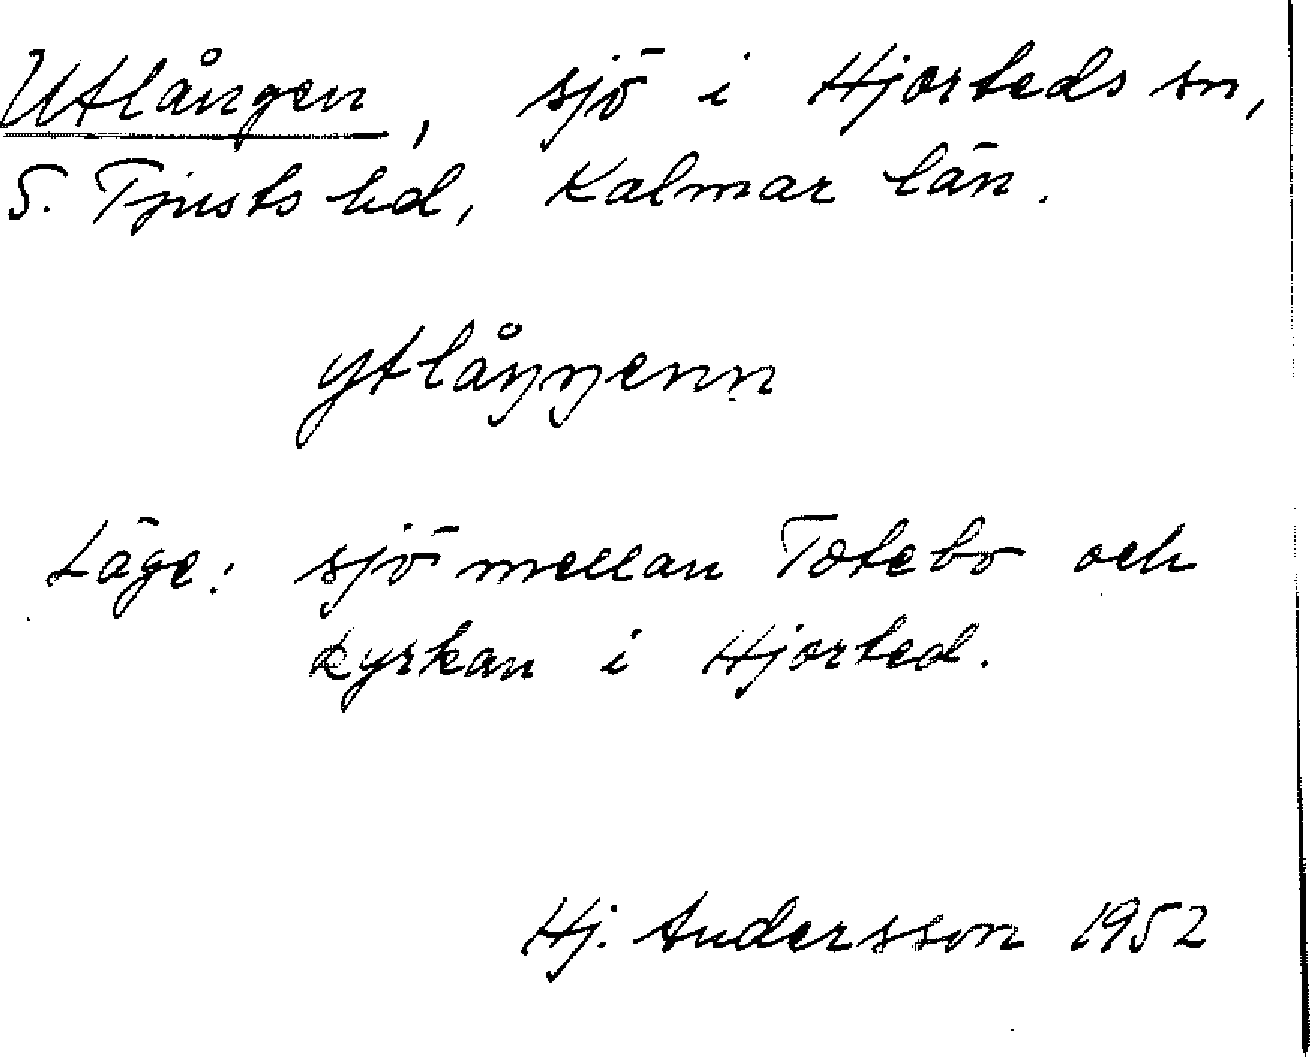 Utlången, sjö i Hjorteds sn,
S. Tjusts hd, Kalmar län.
ytlåŋŋenn
Läge: sjö mellan Totebo och
kyrkan i Hjorted.
Hj. Andersson 1952